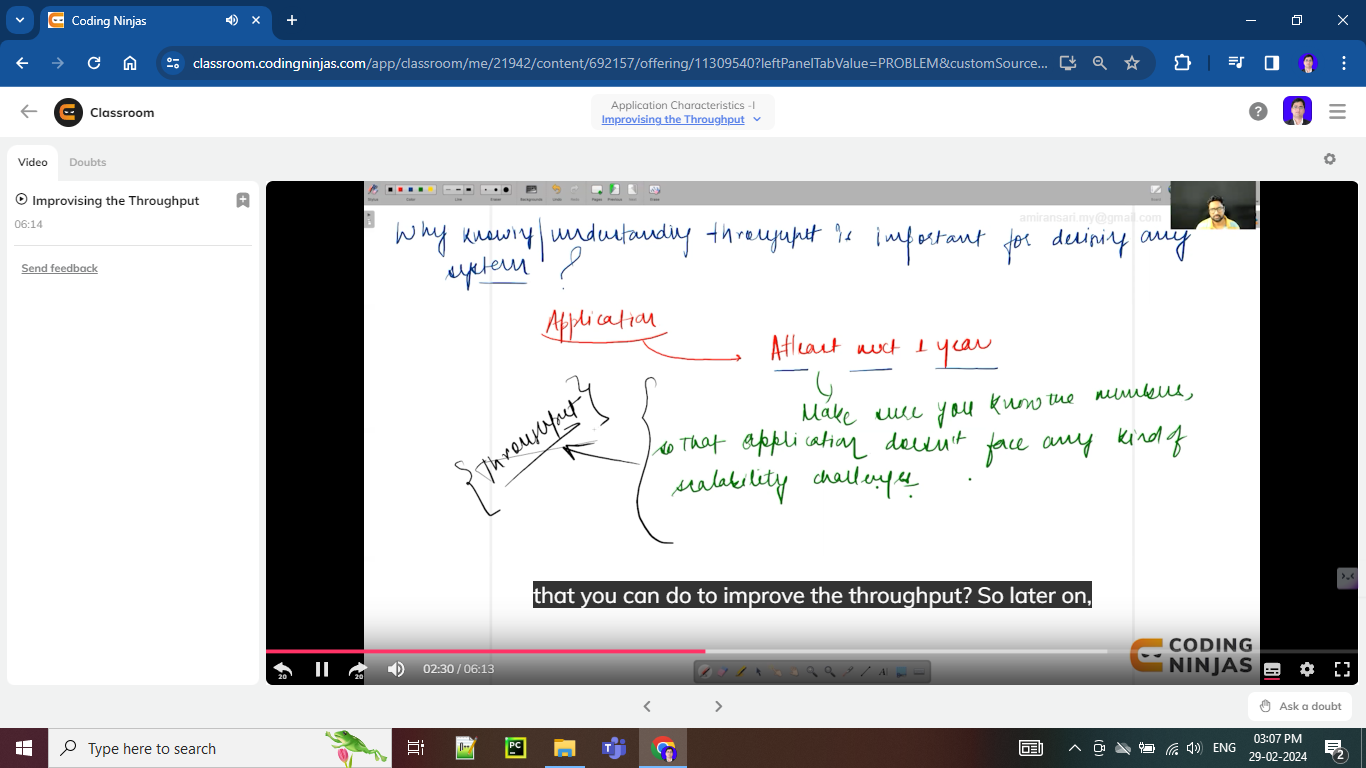 Coding Ninjas
classroom.codingninjas.com/app/classroom/me/21942/content/692157/offering/11309540?leftPanelTabValue=PROBLEM&customSource...
Classroom
Application Characteristics -I
Improvising the Throughput
Video Doubts
Improvising the Throughput
06:14
Send feedback
amiransari.my@gmail.com
Why knowing/understanding throughput is important for desining any
system ?
Application
Atleast next 1 year
Make sure you know the numbers,
so that application doesn't face any kind of
scalability challenges.
{Throughput}
that you can do to improve the throughput? So later on,
CODING
NINJAS
20 20 02:30 / 06:13
Ask a doubt
Type here to search
PC
ENG
03:07 PM
29-02-2024
2